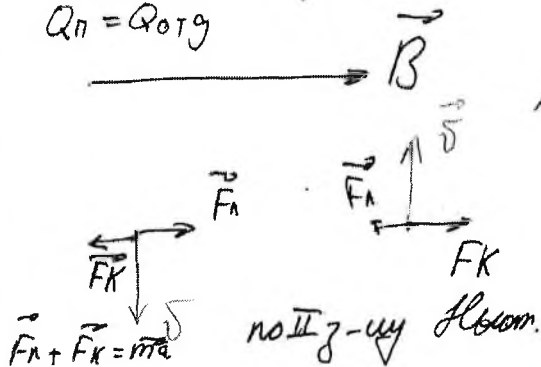 Qп = Qотд
B
υ
Fл
Fл
Fк
FК
υ
Fл + Fк = ma
по II з-ну Ньют.